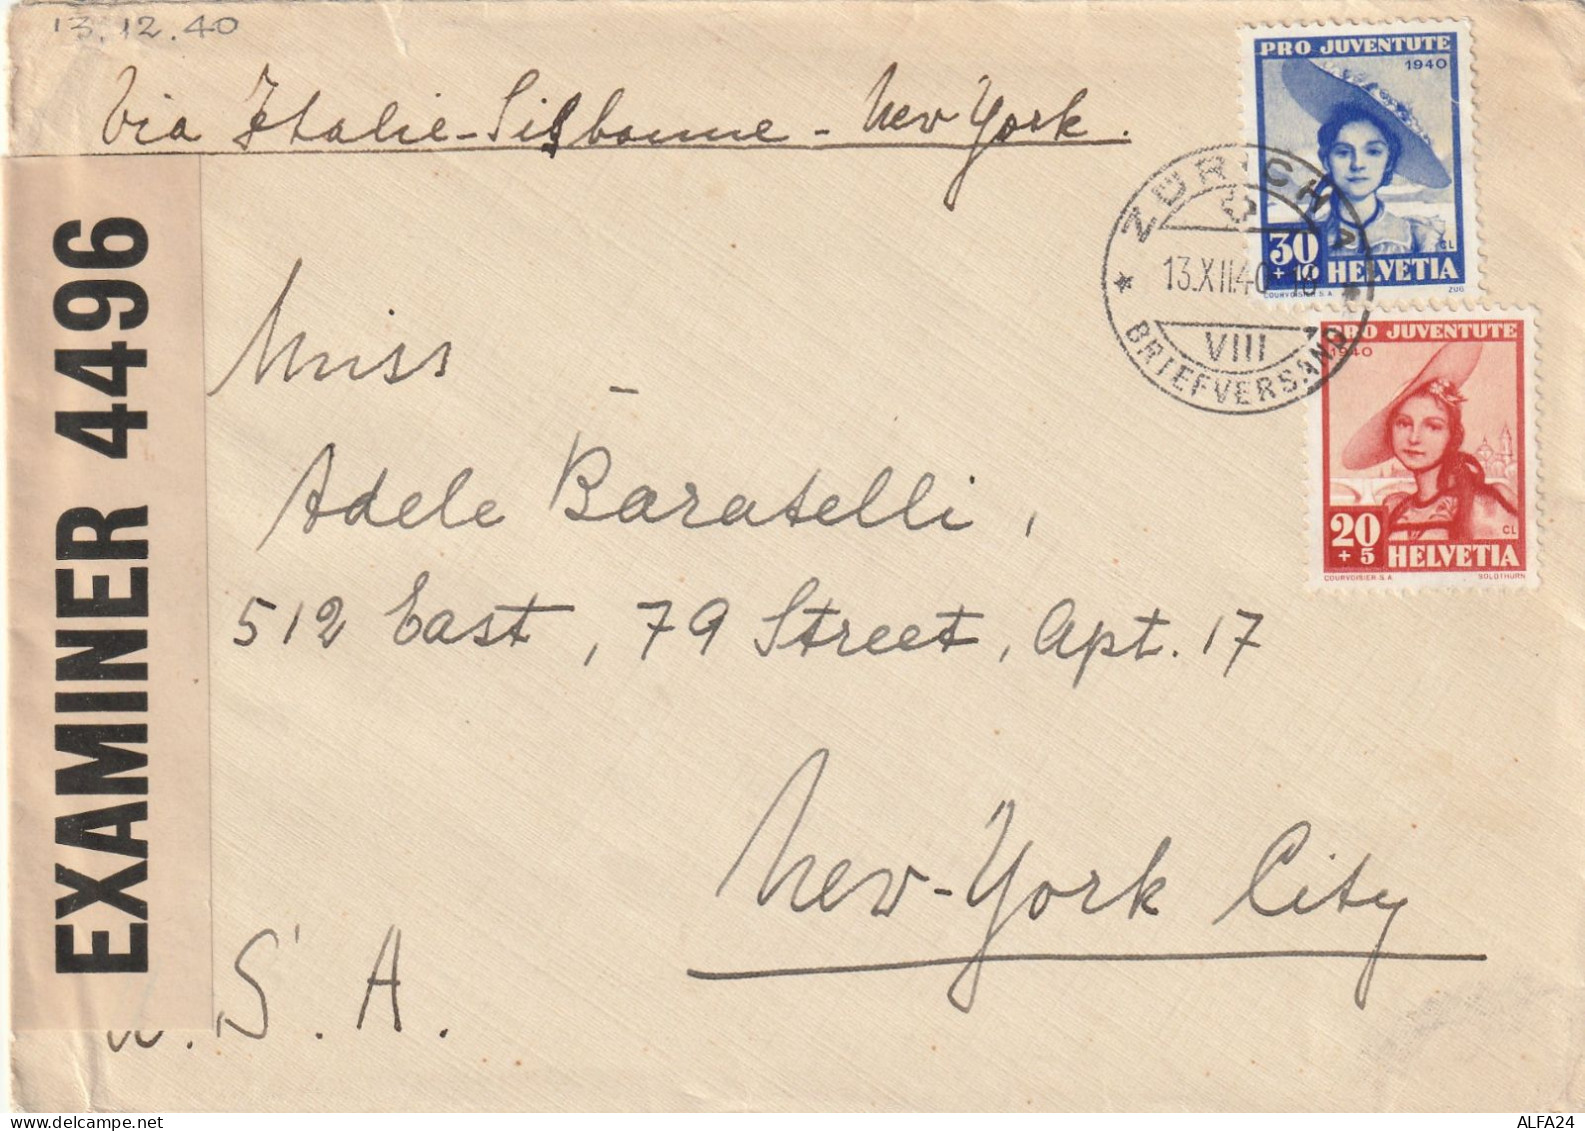 13.12.40
Via Italie-Lisbonne - New York.
PRO JUVENTUTE
1940
30
+ 10
HELVETIA
CL
COURVOISIER S.A.
ZUG
ZÜRICH
13.XII.40
VIII
BRIEFVERSAND
PRO JUVENTUTE
1940
20
+ 5
HELVETIA
CL
COURVOISIER S.A.
SOLOTHURN
EXAMINER 4496
Miss
Adele Baratelli,
512 East, 79 Street, Apt. 17
New-York City
U.S.A.
ALFA24